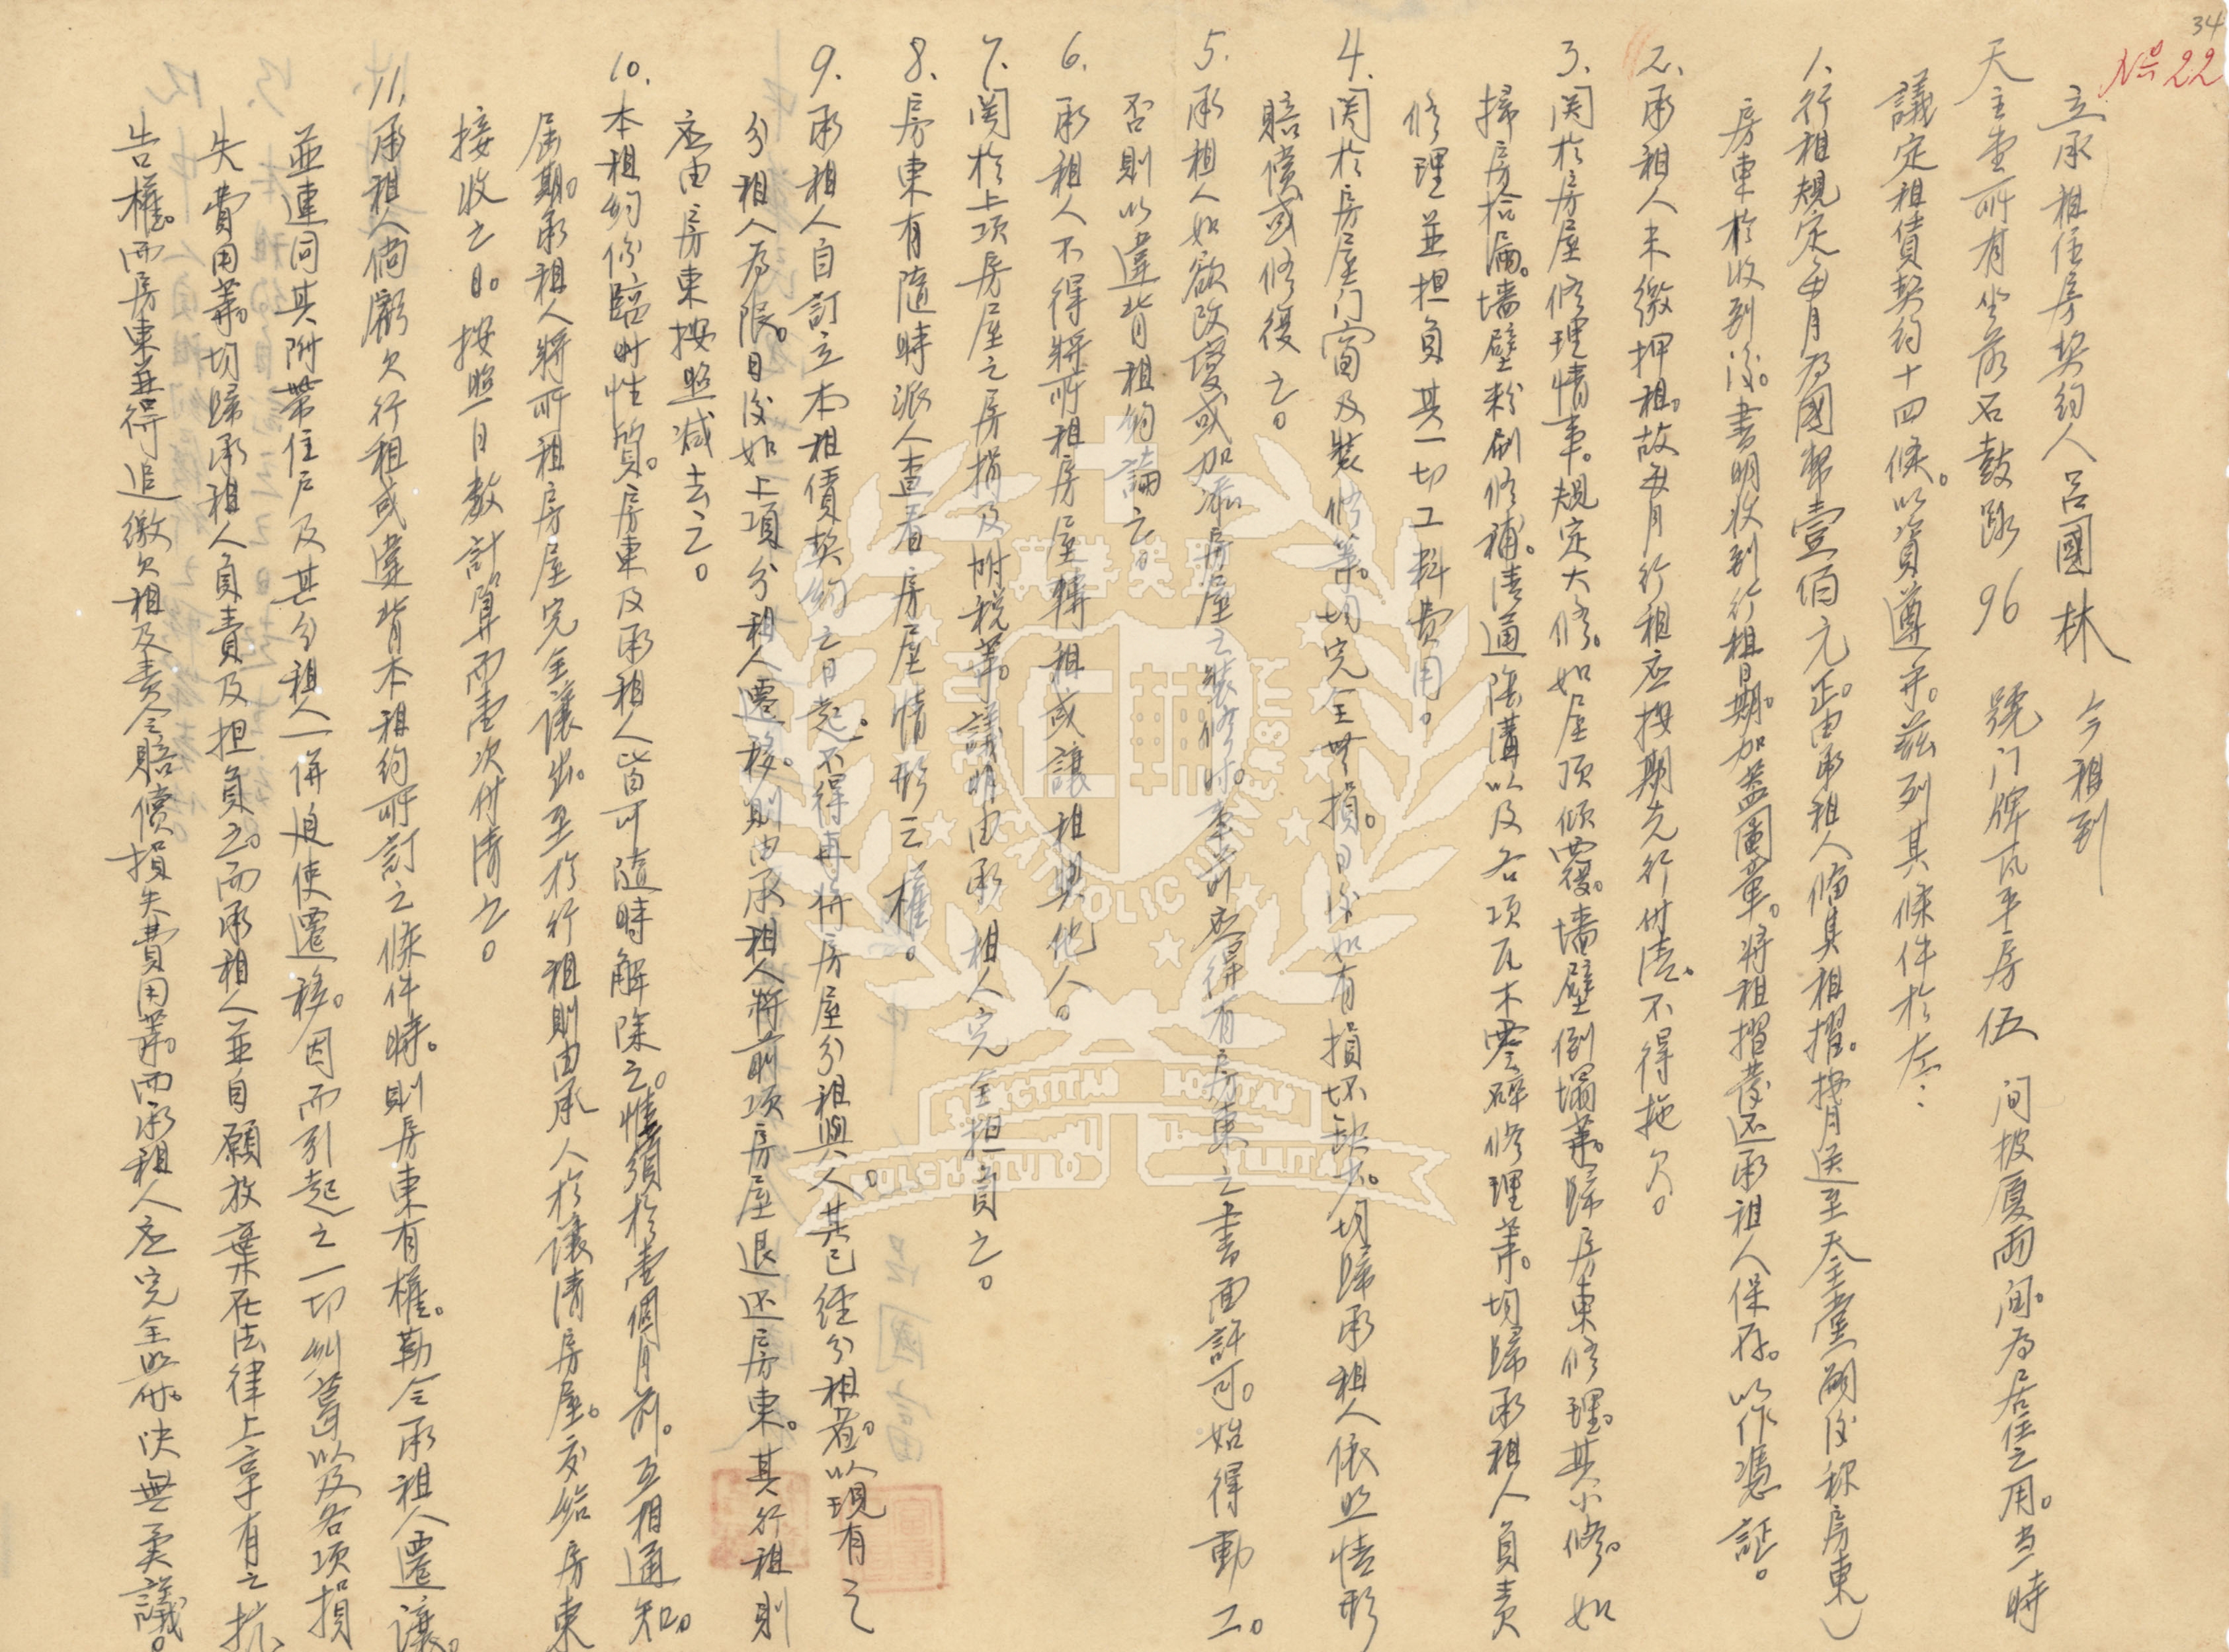 34
№ 22
立承租住房契約人呂國林 今租到
天主堂所有坐落石鼓路 96 號门牌瓦平房 伍 间披廈兩间。為居住之用。当時
議定租賃契約十四條。以資遵守。茲列其條件於左：
1. 行租規定每月為國幣壹佰元正。由承租人備具租摺。按月送至天主堂(嗣後称房東)
房東於收到後。書明收到行租日期。加蓋圖章。將租摺發还承租人保存。以作憑証。
2. 承租人未繳押租。故每月行租应按期先行付清。不得拖欠。
3. 関於房屋修理情事。規定大修。如屋顶倾覆。墙壁倒塌等。歸房東修理。其小修。如
掃房拾漏。墙壁粉刷修補。清通陰溝以及各項瓦木零碎修理等。均歸承租人負责
修理並担負其一切工料费用。
4. 関於房屋门窗及裝修等。均完全無損。日後如有損坏缺少。均歸承租人依照情形
賠償或修復之。
5. 承租人如欲改变或加添房屋之裝修时。事前应得有房東之書面許可。始得動工。
否則以違背租約論之。
6. 承租人不得將所租房屋轉租或讓租與他人。
7. 関於上項房屋之房捐及附税等。議明由承租人完全担負之。
8. 房東有隨時派人查看房屋情形之權。
9. 承租人自訂立本租賃契約之日起。不得再將房屋分租與人。其已經分租者。以現有之
分租人為限。日後如上項分租人遷移。則由承租人將前項房屋退还房東。其行租則
应由房東按照減去之。
10. 本租約係臨时性質。房東及承租人皆可隨時解除之。惟須於壹個月前。互相通知。
屆期。承租人將所租房屋完全讓出。至於行租則由承人於讓清房屋。交給房東
接收之日。按照日數計算而壹次付清之。
11. 承租人倘虧欠行租或違背本租約所訂之條件時。則房東有權。勒令承租人遷讓。
並連同其附帶住戶及其分租人一併迫使遷移。因而引起之一切糾葛以及各项損
失費用等。均歸承租人負責及担負之。而承租人並自願放棄在法律上享有之抗
告權。而房東並得追繳欠租及责令賠償損失費用等。而承租人应完全照付。决無異議。